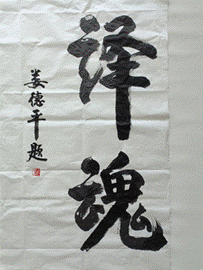 译魂
姜德平题